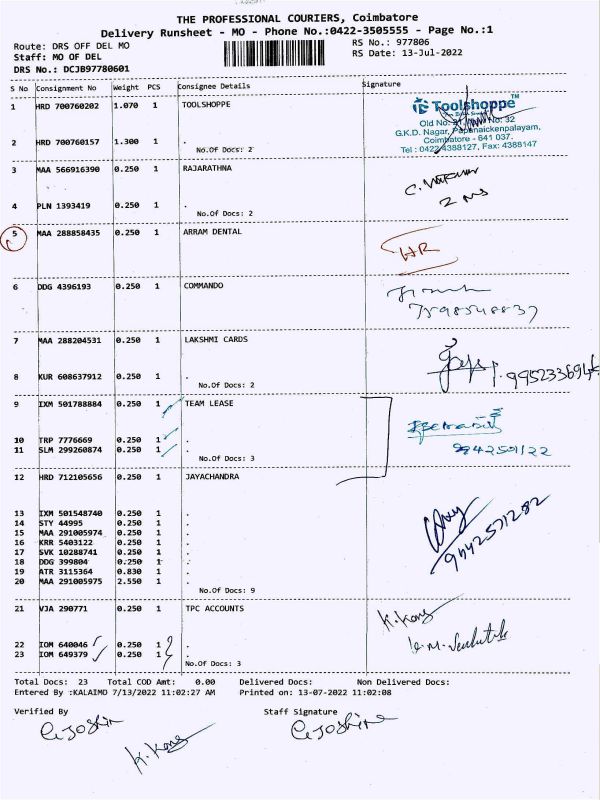 THE PROFESSIONAL COURIERS, Coimbatore
Delivery Runsheet - MO - Phone No.:0422-3505555 - Page No.:1
Route: DRS OFF DEL MO
RS No.: 977806
Staff: MO OF DEL
RS Date: 13-Jul-2022
DRS No.: DCJB97780601
S No Consignment No Weight PCS Consignee Details Signature
1 HRD 700760202 1.070 1 TOOLSHOPPE
Toolshoppe™
No: 32
G.K.D. Nagar, Papanaickenpalayam,
Coimbatore - 641 037.
Tel : 0422 4388127, Fax: 4388147
2 HRD 700760157 1.300 1 .
No.Of Docs: 2
3 MAA 566916390 0.250 1 RAJARATHNA
4 PLN 1393419 0.250 1 .
No.Of Docs: 2
5 MAA 288858435 0.250 1 ARRAM DENTAL
HR
6 DDG 4396193 0.250 1 COMMANDO
7598548837
7 MAA 288204531 0.250 1 LAKSHMI CARDS
8 KUR 608637912 0.250 1 .
No.Of Docs: 2
9 IXM 501788884 0.250 1 TEAM LEASE
10 TRP 7776669 0.250 1 .
11 SLM 299260874 0.250 1 .
No.Of Docs: 3
9942501122
12 HRD 712105656 0.250 1 JAYACHANDRA
13 IXM 501548740 0.250 1 .
14 STY 44995 0.250 1 .
15 MAA 291005974 0.250 1 .
16 KRR 5403122 0.250 1 .
17 SVK 10288741 0.250 1 .
18 DDG 399804 0.250 1 .
19 ATR 3115364 0.830 1 .
20 MAA 291005975 2.550 1 .
No.Of Docs: 9
9442571282
21 VJA 290771 0.250 1 TPC ACCOUNTS
K.Kong
22 IOM 640046 0.250 1 .
23 IOM 649379 0.250 1 .
No.Of Docs: 3
Total Docs: 23 Total COD Amt: 0.00 Delivered Docs: Non Delivered Docs:
Entered By :KALAIMD 7/13/2022 11:02:27 AM Printed on: 13-07-2022 11:02:08
Verified By Staff Signature
K.Kong